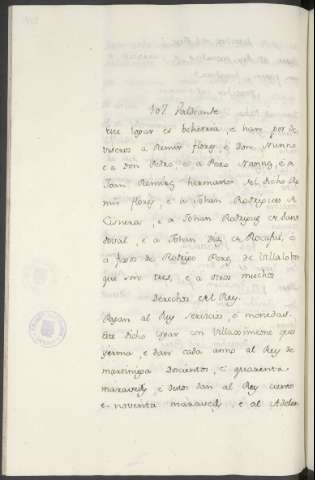 107 Valdeante
Este logar es behetria, e han por de
viseros a Remir flores, e Don Nunno
e a Don Pedro, e a Pero Nunnez, e a
Joan Remirez hermanos del dicho Re
mir flores, e a Johan Rodriguez de
Cisneros, e a Johan Rodriguez de Sando
doval, e a Johan Diaz de Rocafull, e
a fijos de Rodrigo Perez de Villalobos
que son tres, e a otros muchos
Derechos del Rey.
Pagan al Rey servicios, e monedas.
Este dicho logar con Villaximeno que es
yerma, e dan cada anno al Rey de
martiniega docientos, e quarenta
maravedis, e destos dan al Rey ciento
e noventa maravedis, e al Adelan